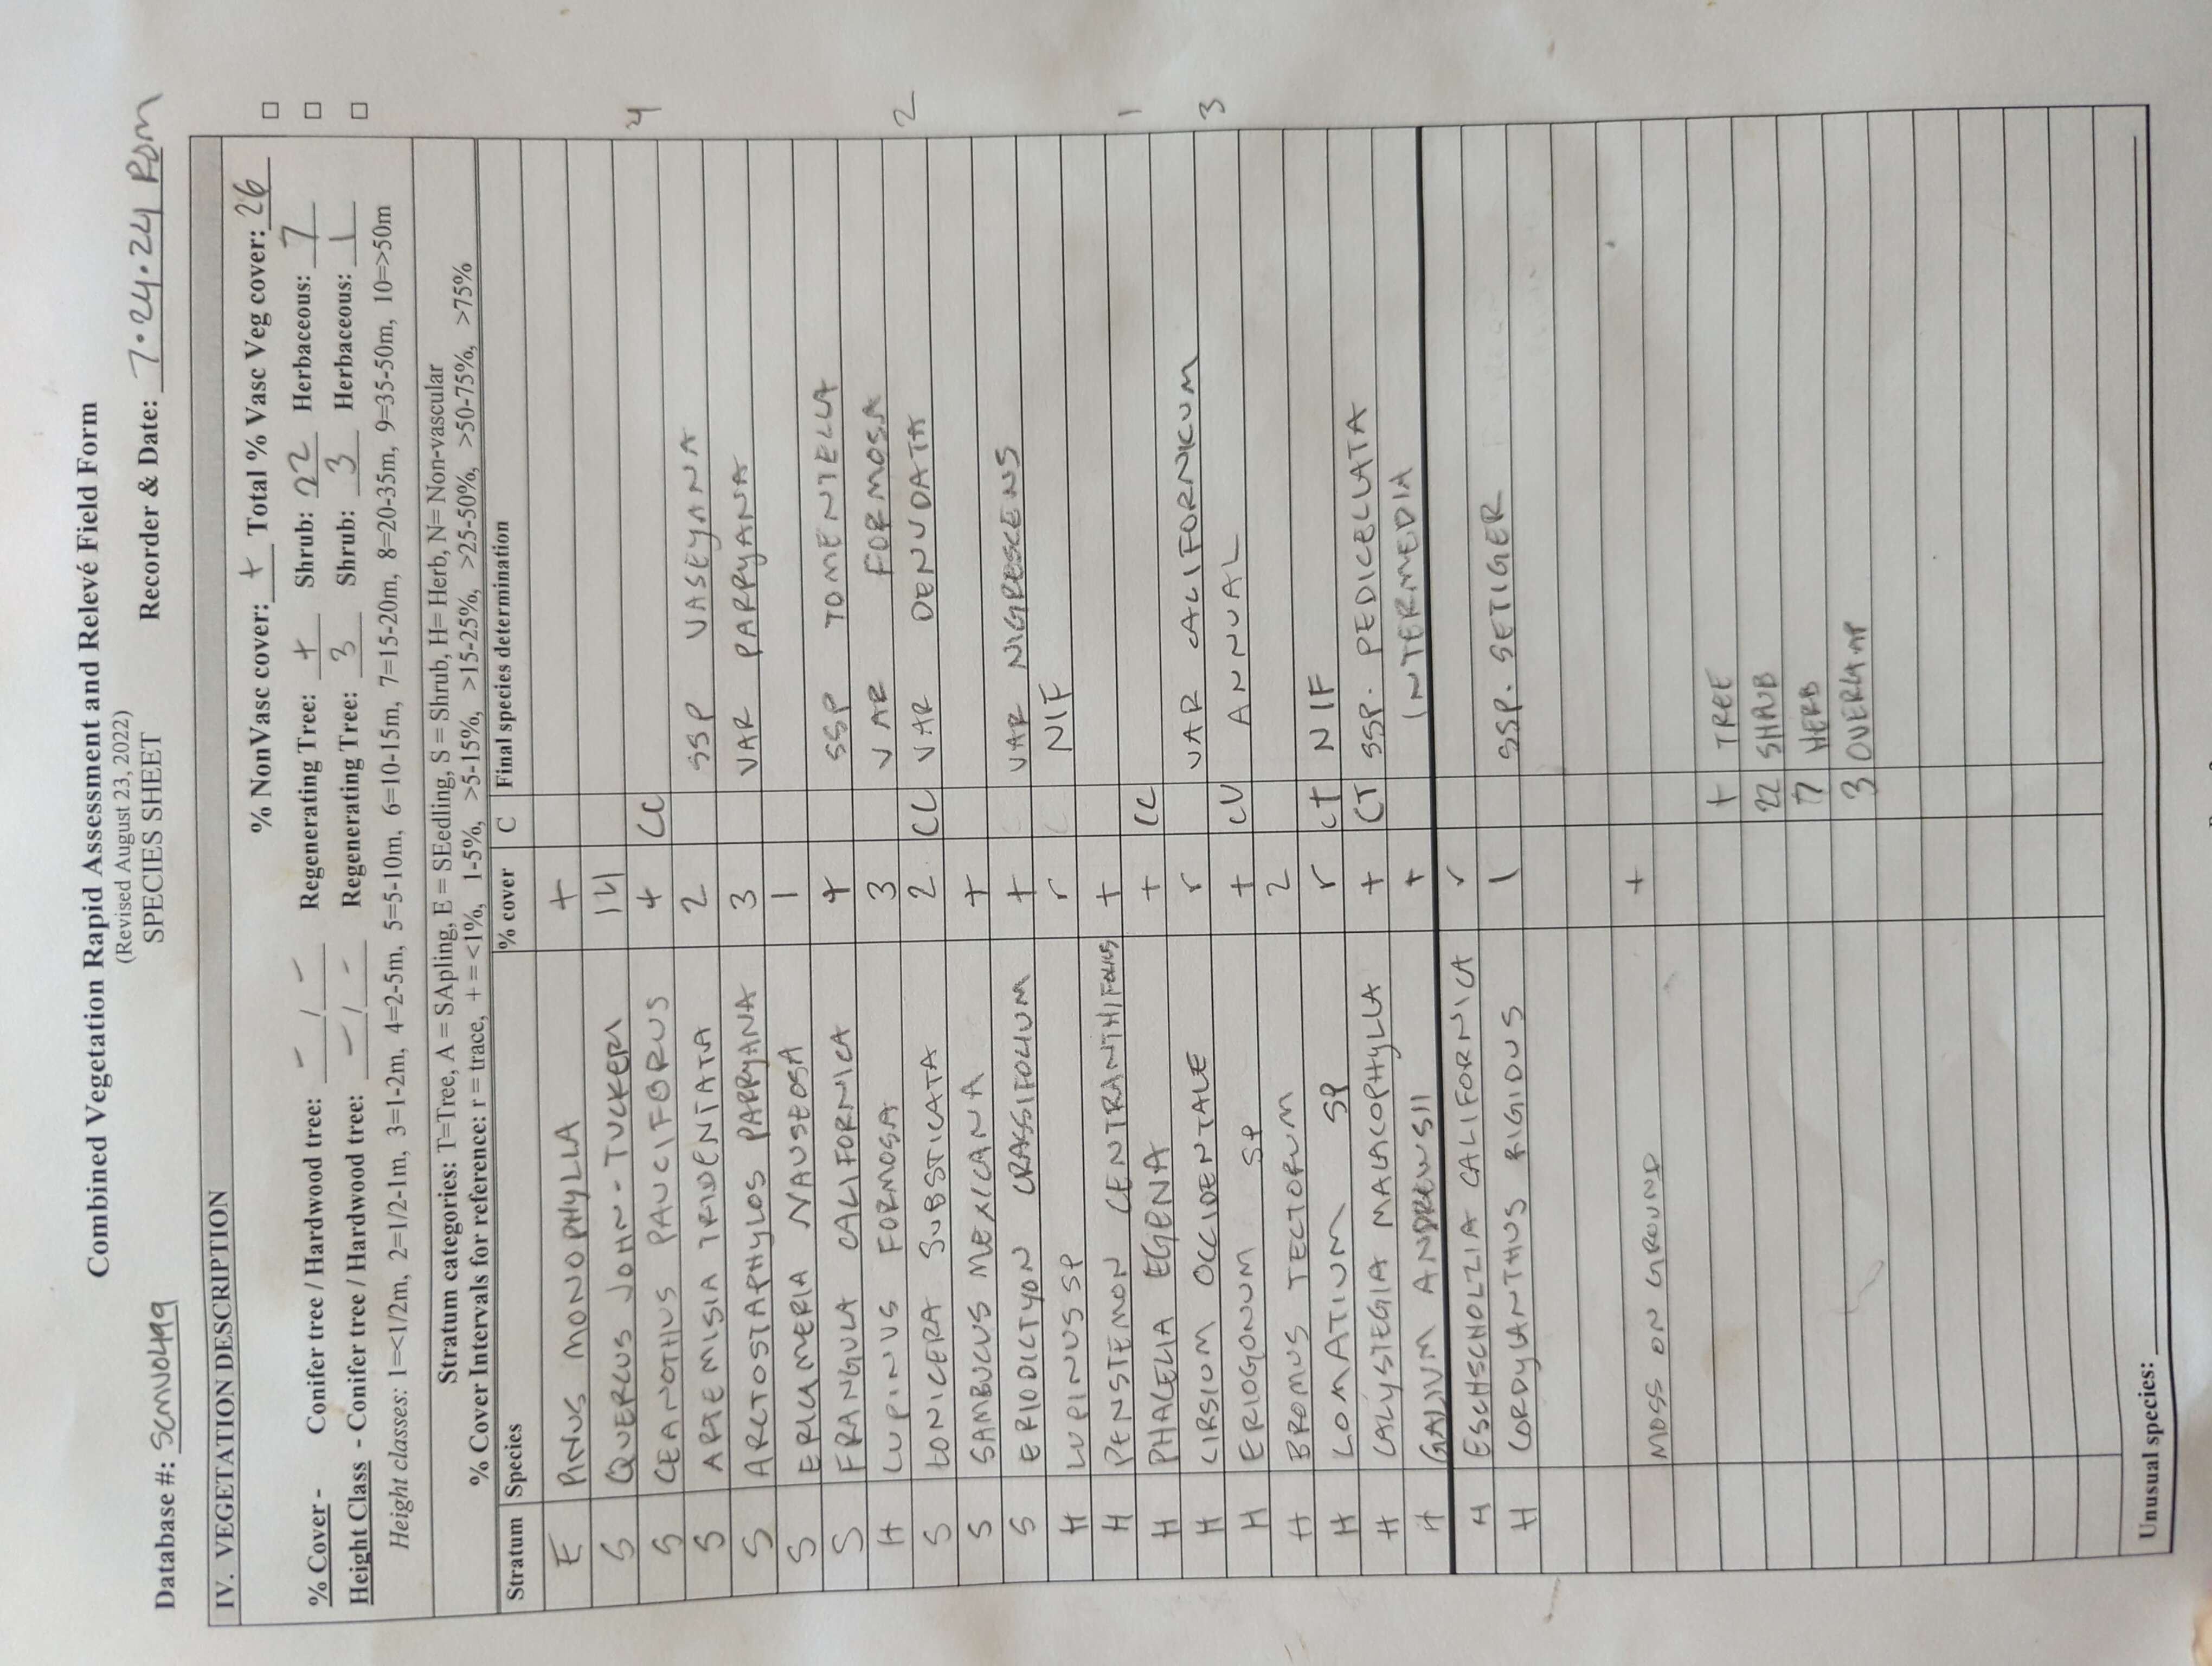 Combined Vegetation Rapid Assessment and Relevé Field Form
(Revised August 23, 2022)
SPECIES SHEET
Database #: SCMV0499 Recorder & Date: 7•24•24 RDM
IV. VEGETATION DESCRIPTION
% NonVasc cover: + Total % Vasc Veg cover: 26 □
% Cover - Conifer tree / Hardwood tree: - / - Regenerating Tree: + Shrub: 22 Herbaceous: 7 □
Height Class - Conifer tree / Hardwood tree: - / - Regenerating Tree: 3 Shrub: 3 Herbaceous: 1 □
Height classes: 1=<1/2m, 2=1/2-1m, 3=1-2m, 4=2-5m, 5=5-10m, 6=10-15m, 7=15-20m, 8=20-35m, 9=35-50m, 10=>50m
Stratum categories: T=Tree, A = SApling, E = SEedling, S = Shrub, H= Herb, N= Non-vascular
% Cover Intervals for reference: r = trace, + = <1%, 1-5%, >5-15%, >15-25%, >25-50%, >50-75%, >75%
Stratum Species % cover C Final species determination
E PINUS MONOPHYLLA +
S QUERCUS JOHN-TUCKERI 14
S CEANOTHUS PAUCIFORUS + CC 4
S ARTEMISIA TRIDENTATA 2 SSP VASEYANA
S ARCTOSTAPHYLOS PARRYANA 3 VAR PARRYANA
S ERICAMERIA NAUSEOSA 1
S FRANGULA CALIFORNICA + SSP TOMENTELLA
H LUPINUS FORMOSA 3 VAR FORMOSA
S LONICERA SUBSTICATA 2 CC VAR DENUDATA 2
S SAMBUCUS MEXICANA +
S ERIODICTYON CRASSIFOLIUM + VAR NIGRESCENS
H LUPINUS SP r NIF
H PENSTEMON CENTRANTHIFOLIUS +
H PHACELIA EGENA + CC 1
H CIRSIUM OCCIDENTALE r VAR CALIFORNICUM
H ERIOGONUM SP + CU ANNUAL 3
H BROMUS TECTORUM 2
H LOMATIUM SP r CT NIF
H CALYSTEGIA MALACOPHYLLA + CT SSP. PEDICELLATA
H GALIUM ANDREWSII + INTERMEDIA
H ESCHSCHOLZIA CALIFORNICA r
H CORDYLANTHUS RIGIDUS 1 SSP. SETIGER
MOSS ON GROUND +
+ TREE
22 SHRUB
7 HERB
3 OVERLAP
Unusual species: